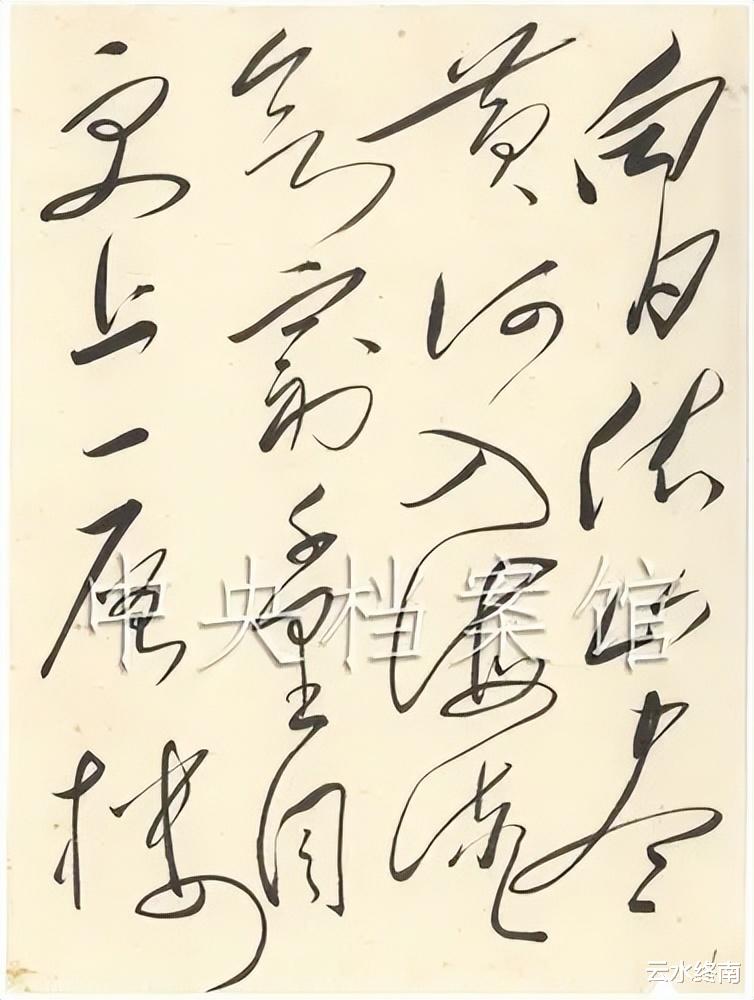 白日依山尽
黄河入海流
欲穷千里目
更上一层楼
中央档案馆
云水终南